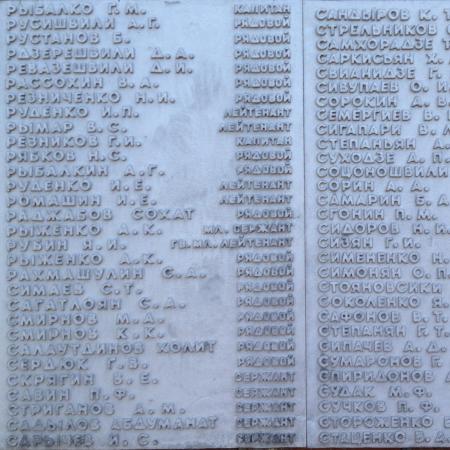 РЫБАЛКО Г.М. КАПИТАН
РУСИШВИЛИ А.Г. РЯДОВОЙ
РУСТАНОВ Б. РЯДОВОЙ
РДЗЕРЕШВИЛИ Д.А. РЯДОВОЙ
РЕВАЗЕШВИЛИ Д.И. РЯДОВОЙ
РАССОХИН В.А. РЯДОВОЙ
РЕЗНИЧЕНКО Н.И. РЯДОВОЙ
РУДЕНКО И.П. ЛЕЙТЕНАНТ
РЫМАР В.С. ЛЕЙТЕНАНТ
РЕЗНИКОВ Г.И. КАПИТАН
РЯБКОВ Н.С. РЯДОВОЙ
РЫБАЛКИН А.Г. РЯДОВОЙ
РУДЕНКО И.Е. ЛЕЙТЕНАНТ
РОМАШИН И.Е. ЛЕЙТЕНАНТ
РАДЖАБОВ СОХАТ РЯДОВОЙ
РЫЖЕНКО А.К. МЛ. СЕРЖАНТ
РУБИН Я.И. ГВ. МЛ. ЛЕЙТЕНАНТ
РЫЖЕНКО А.К. РЯДОВОЙ
РАХМАШУЛИН С.А. РЯДОВОЙ
СИМАЕВ С.Т. РЯДОВОЙ
САГАТЛОЯН С.А. РЯДОВОЙ
СМИРНОВ М.А. РЯДОВОЙ
СМИРНОВ К.К. РЯДОВОЙ
САЛАУТДИНОВ ХОЛИТ РЯДОВОЙ
СЕРДЮК Г.В. РЯДОВОЙ
СКРЯГИН В.Е. СЕРЖАНТ
САВИН П.Ф. СЕРЖАНТ
СТРИГАНОВ А.М. СЕРЖАНТ
САДЫЛОВ АБДУМАНАТ СЕРЖАНТ
САРЫЧЕВ И.С. СЕРЖАНТ
САНДЫРОВ К.Т
СТРЕЛЬНИКОВ
САМХОРАДЗЕ
САРКИСЬЯН Х.
СВИАНИДЗЕ Г.
СИВУПАЕВ О.И
СОРОКИН А.В
СЕМЕРГИЕВ В.
СИГАПАРИ В.
СТЕПАНЬЯН А.
СУХОДЗЕ А.П.
СОЦОНОШВИЛИ
СОРИН А.А.
САМАРИН Б.А
СГОНИН П.М.
СИДОРОВ Н.И
СИЗЯН Г.И.
СИМЕНЕНКО Н.
СИМОНЯН О.П
СТОЯНОВСКИ
СОКОЛЕНКО Я.
САФОНОВ В.Т.
СТЕПАНЯН Г.Т.
СИПАЧЕВ А.Д.
СУМАРОНОВ Г.
СПИРИДОНОВ
СУДАК М.Ф.
СУЧКОВ П.Ф.
СТОРОЖЕНКО
СТАЦЕНКО В.